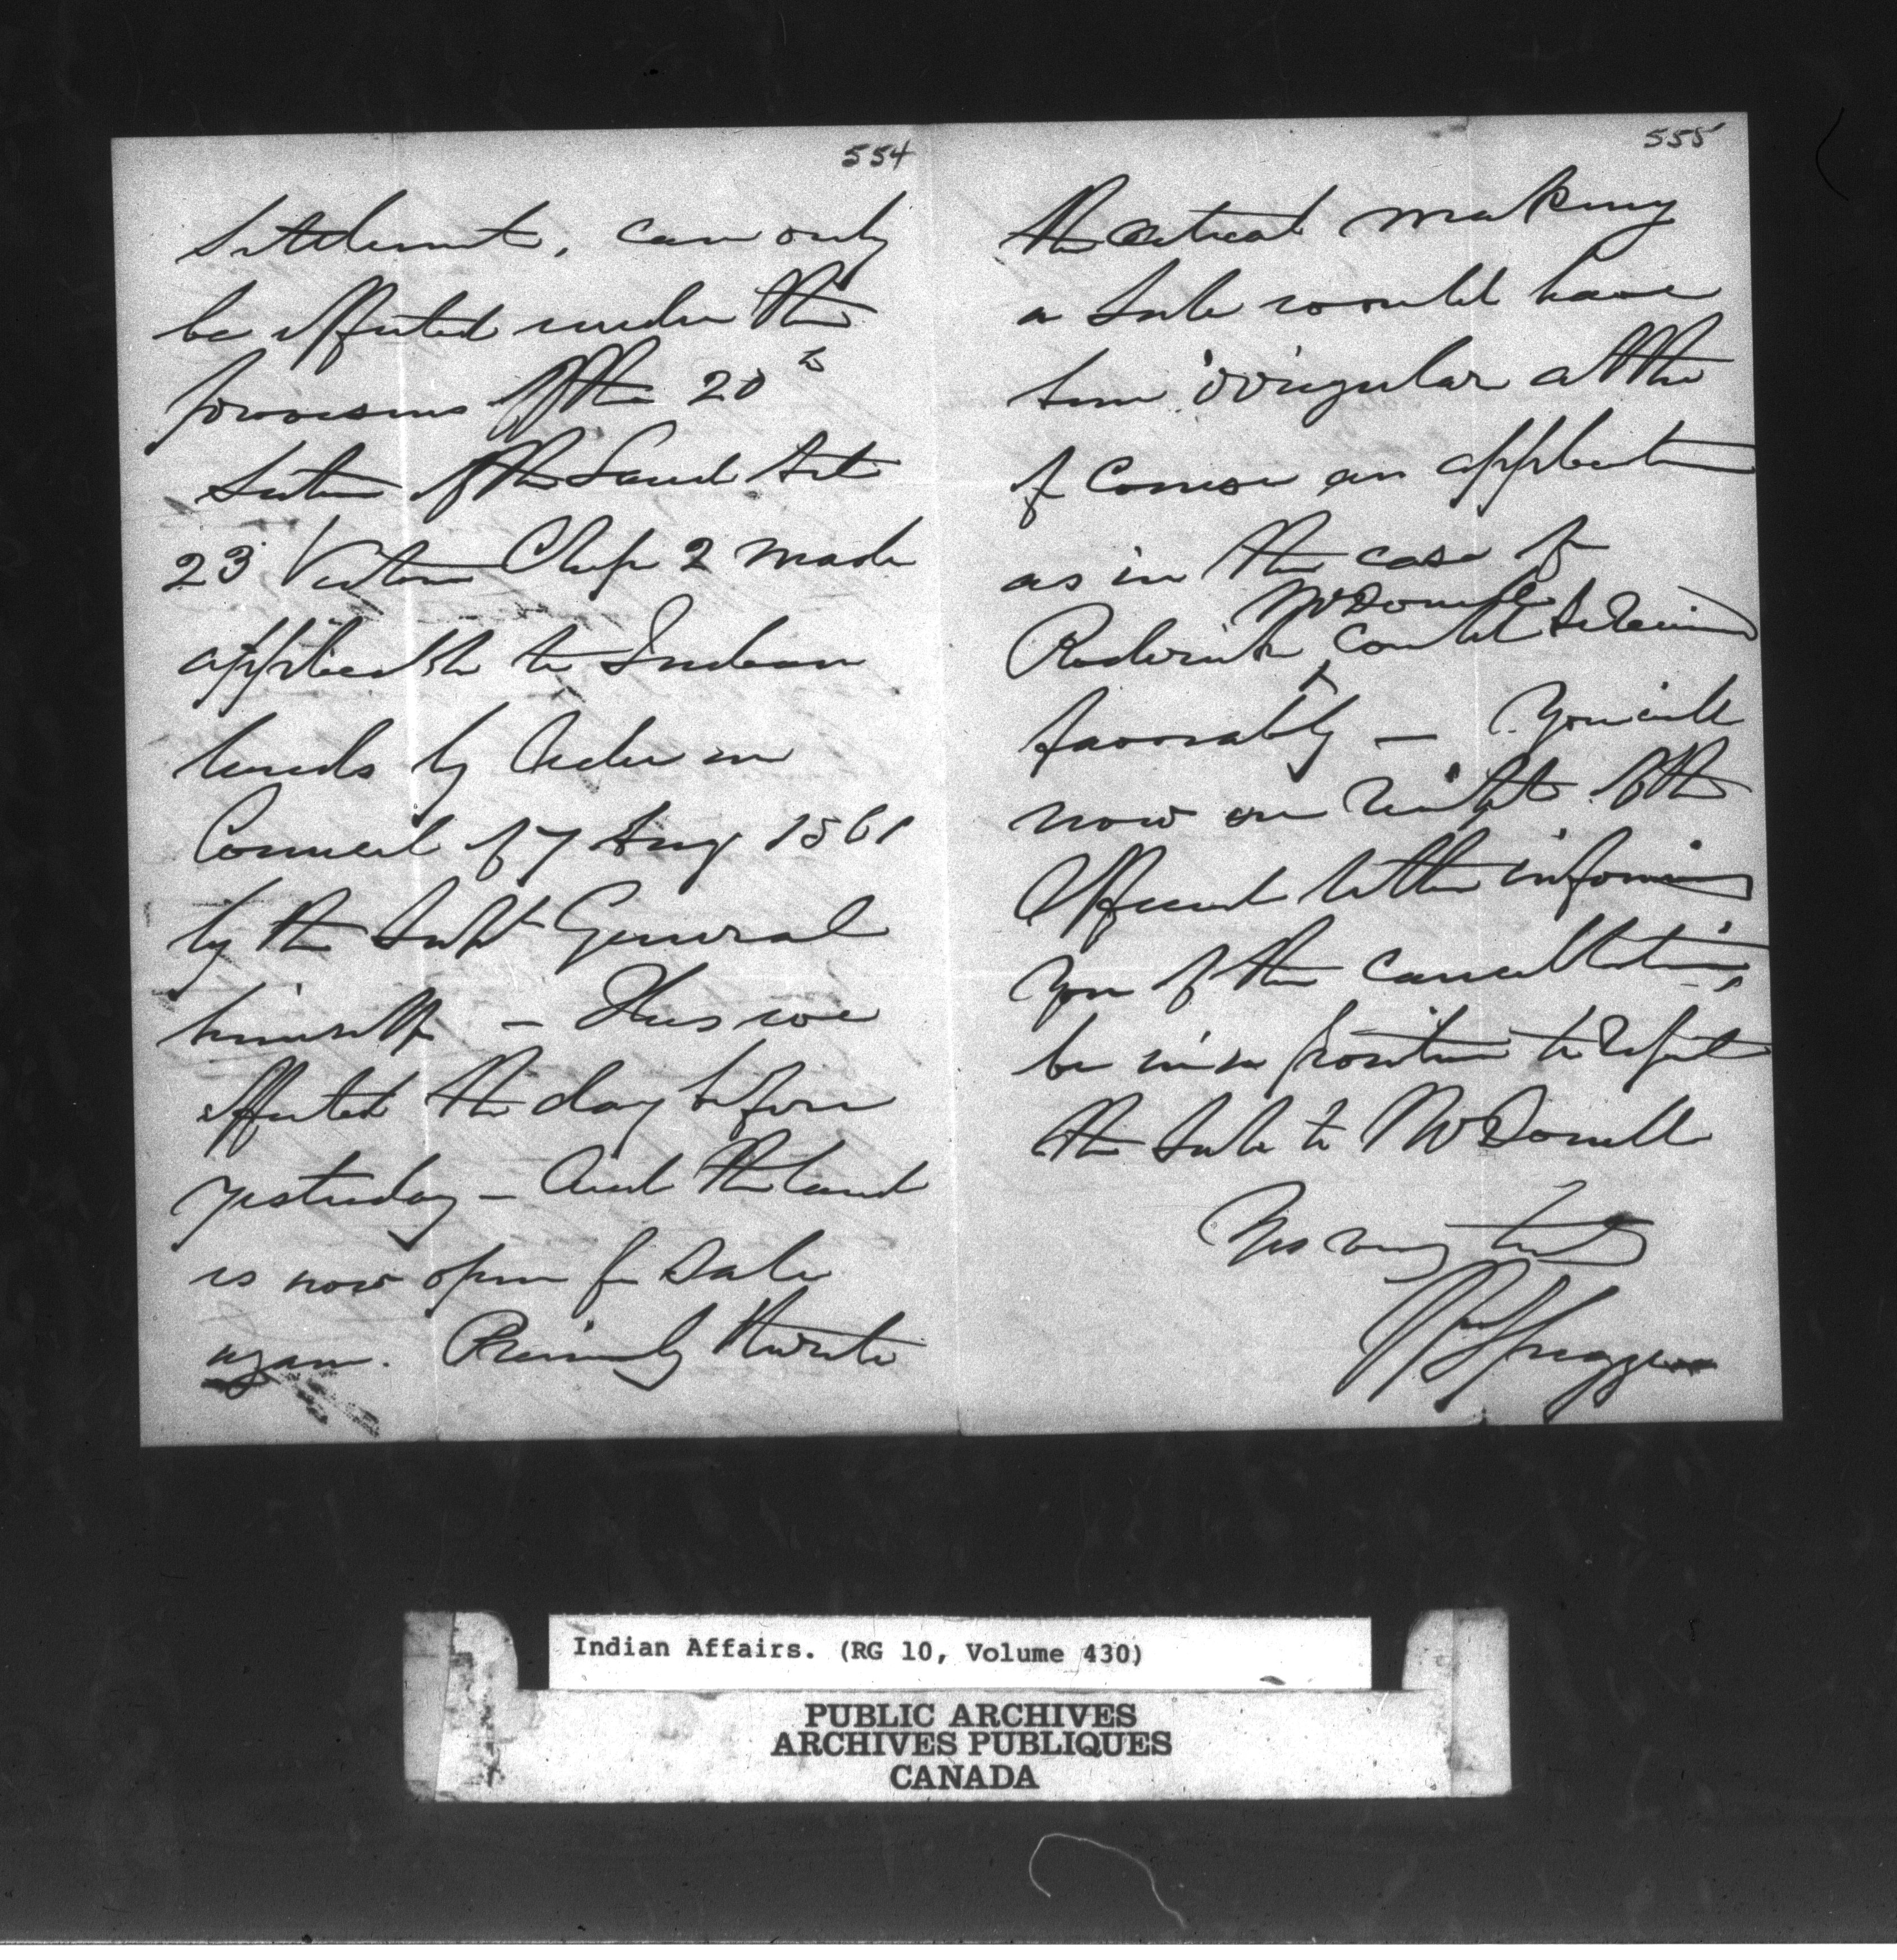 554
Settlement, can only
be effected under the
provisions of the 20th
Section of the Land Act
23 Victoria Chap 2 made
applicable to Indian
lands by Order in
Council of 7 Aug 1861
by the Supt General
himself — This was
effected the day before
yesterday — And the land
is now open for Sale
again. Previously thereto
555
the actual making
a Sale would have
been irregular altho
of Course an application
as in the case of
McDonell
Roderick could be received
favorably — You will
now on receipt of the
Official letter informing
you of the Cancellation,
be in a position to report
the Sale to McDonell
Yrs very truly
Spragge
Indian Affairs. (RG 10, Volume 430)
PUBLIC ARCHIVES
ARCHIVES PUBLIQUES
CANADA